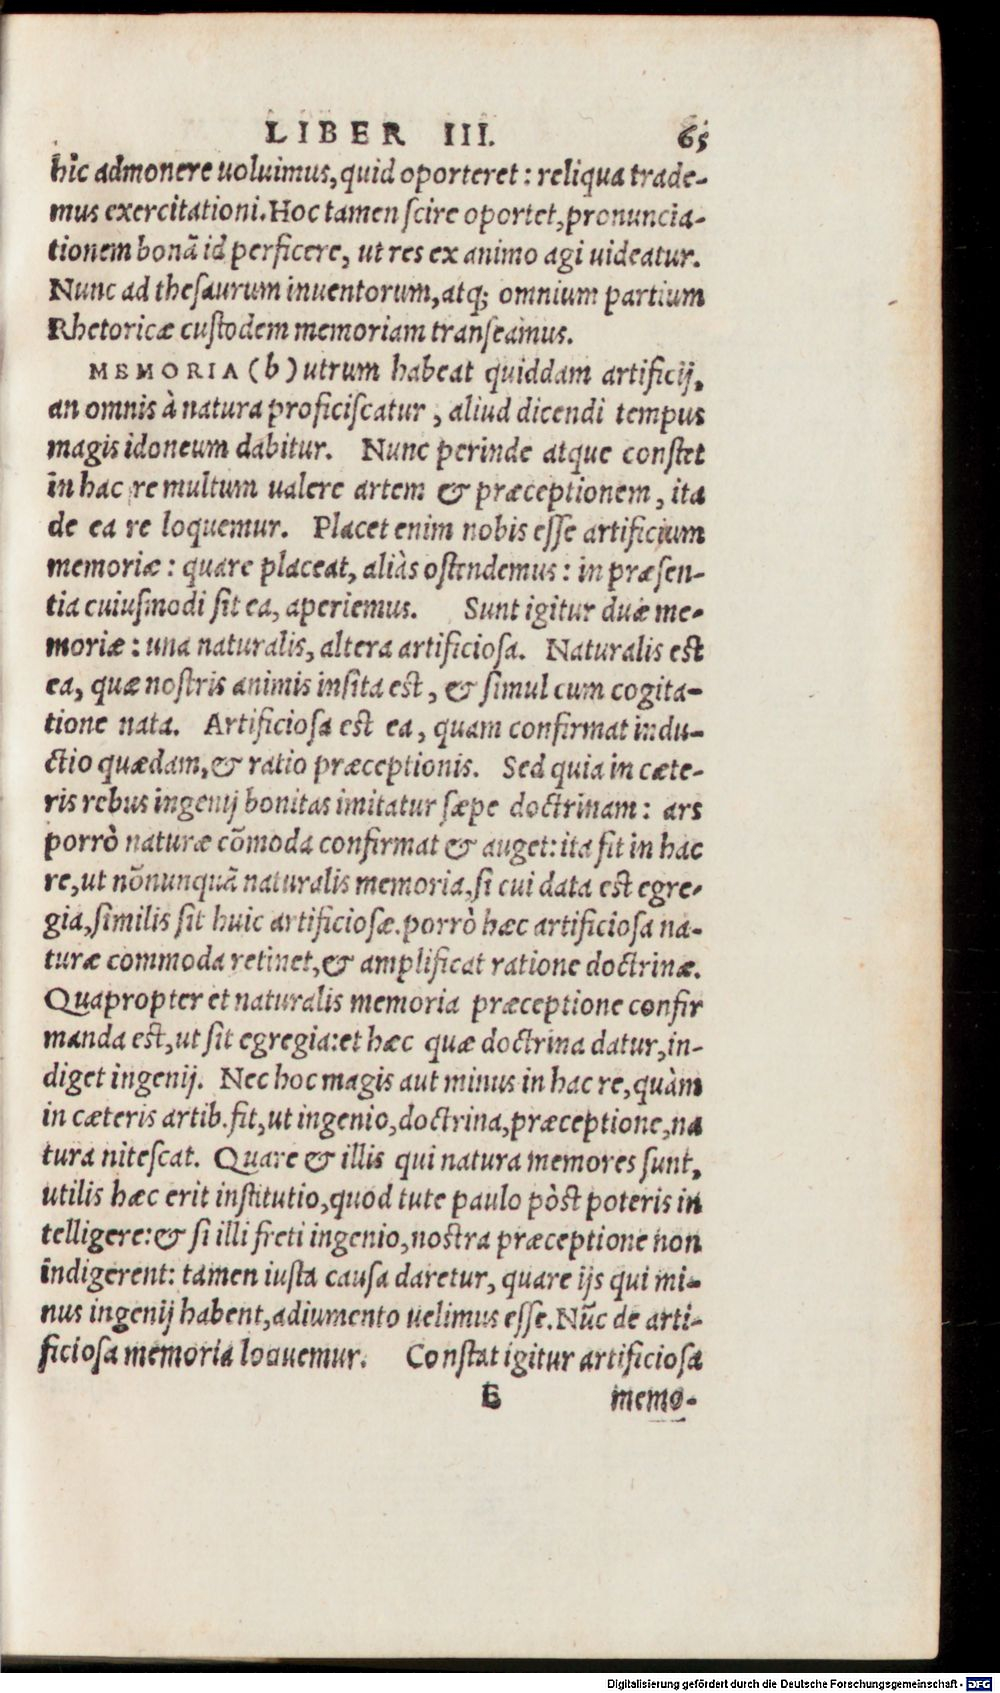 LIBER III. 65
hîc admonere uoluimus, quid oporteret: reliqua trade-
mus exercitationi. Hoc tamen scire oportet, pronuncia-
tionem bonã id perficere, ut res ex animo agi uideatur.
Nunc ad thesaurum inuentorum, atq; omnium partium
Rhetoricæ custodem memoriam transeamus.
MEMORIA (b) utrum habeat quiddam artificij,
an omnis à natura proficiscatur, aliud dicendi tempus
magis idoneum dabitur. Nunc perinde atque constet
in hac re multum ualere artem & præceptionem, ita
de ea re loquemur. Placet enim nobis esse artificium
memoriæ: quare placeat, aliàs ostendemus: in præsen-
tia cuiusmodi sit ea, aperiemus. Sunt igitur duæ me-
moriæ: una naturalis, altera artificiosa. Naturalis est
ea, quæ nostris animis insita est, & simul cum cogita-
tione nata. Artificiosa est ea, quam confirmat indu-
ctio quædam, & ratio præceptionis. Sed quia in cæte-
ris rebus ingenij bonitas imitatur sæpe doctrinam: ars
porrò naturæ cõmoda confirmat & auget: ita fit in hac
re, ut nõnunquã naturalis memoria, si cui data est egre-
gia, similis sit huic artificiosæ. porrò hæc artificiosa na-
turæ commoda retinet, & amplificat ratione doctrinæ.
Quapropter et naturalis memoria præceptione confir
manda est, ut sit egregia: et hæc quæ doctrina datur, in-
diget ingenij. Nec hoc magis aut minus in hac re, quàm
in cæteris artib. fit, ut ingenio, doctrina, præceptione, na
tura nitescat. Quare & illis qui natura memores sunt,
utilis hæc erit institutio, quod tute paulo pòst poteris in
telligere: & si illi freti ingenio, nostra præceptione non
indigerent: tamen iusta causa daretur, quare ijs qui mi-
nus ingenij habent, adiumento uelimus esse. Nũc de arti-
ficiosa memoria loquemur. Constat igitur artificiosa
E memo-
Digitalisierung gefördert durch die Deutsche Forschungsgemeinschaft - DFG